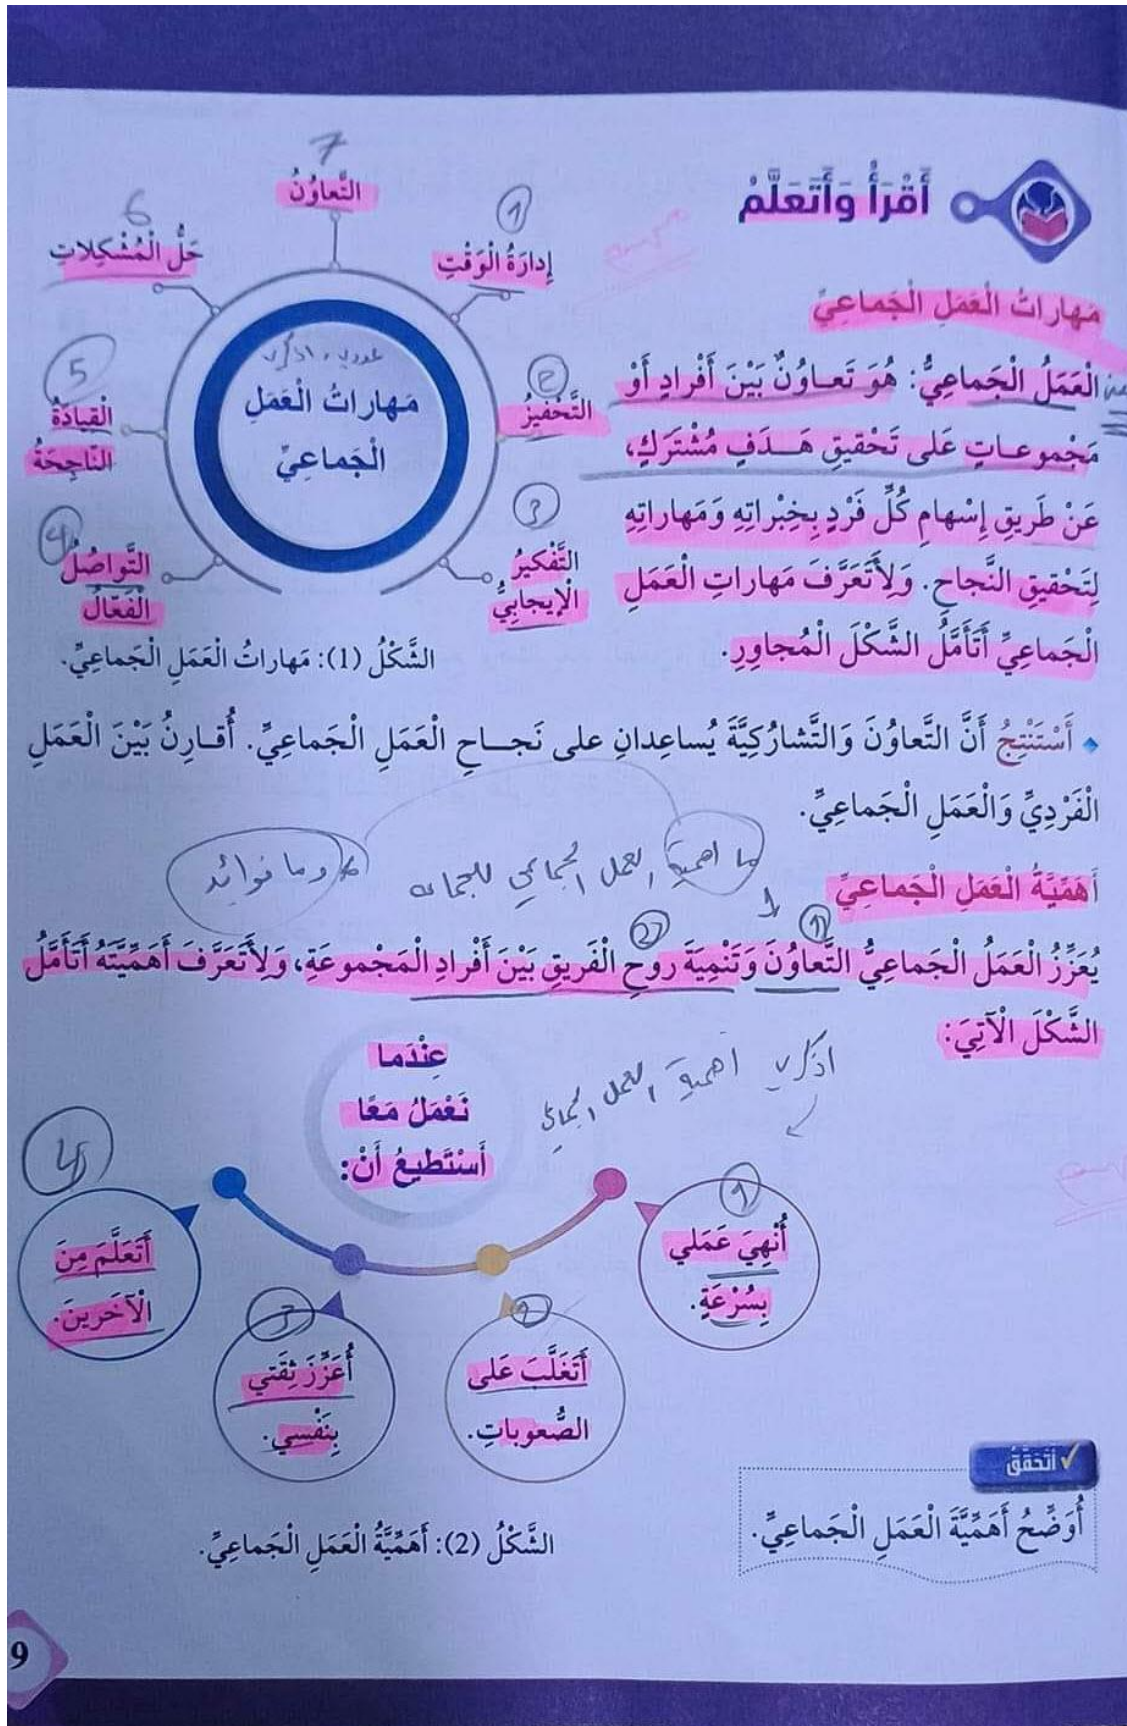 أَقْرَأُ وَأَتَعَلَّمُ
مَهاراتُ الْعَمَلِ الْجَماعِيِّ
الْعَمَلُ الْجَماعِيُّ: هُوَ تَعاوُنٌ بَيْنَ أَفْرادٍ أَوْ
مَجْموعاتٍ عَلى تَحْقيقِ هَدَفٍ مُشْتَرَكٍ،
عَنْ طَريقِ إِسْهامِ كُلِّ فَرْدٍ بِخِبْراتِهِ وَمَهاراتِهِ
لِتَحْقيقِ النَّجاحِ. وَلِأَتَعَرَّفَ مَهاراتِ الْعَمَلِ
الْجَماعِيِّ أَتَأَمَّلُ الشَّكْلَ الْمُجاوِرِ.
مَهاراتُ الْعَمَلِ
الْجَماعِيِّ
1
إِدارَةُ الْوَقْتِ
2
التَّحْفيزُ
3
التَّفْكيرُ
الْإيجابِيُّ
4
التَّواصُلُ
الْفَعّالُ
5
الْقِيادَةُ
النّاجِحَةُ
6
حَلُّ الْمُشْكِلاتِ
7
التَّعاوُنُ
الشَّكْلُ (1): مَهاراتُ الْعَمَلِ الْجَماعِيِّ.
أَسْتَنْتِجُ أَنَّ التَّعاوُنَ وَالتَّشارُكِيَّةَ يُساعِدانِ على نَجاحِ الْعَمَلِ الْجَماعِيِّ. أُقارِنُ بَيْنَ الْعَمَلِ
الْفَرْدِيِّ وَالْعَمَلِ الْجَماعِيِّ.
ما اهمية العمل الجماعي وما فوائد
أَهَمِّيَّةُ الْعَمَلِ الْجَماعِيِّ
يُعَزِّزُ الْعَمَلُ الْجَماعِيُّ التَّعاوُنَ وَتَنْمِيَةَ روحِ الْفَريقِ بَيْنَ أَفْرادِ الْمَجْموعَةِ، وَلِأَتَعَرَّفَ أَهَمِّيَّتَهُ أَتَأَمَّلُ
الشَّكْلَ الْآتِيَ:
اذكر اهمية العمل الجماعي
عِنْدَما
نَعْمَلُ مَعًا
أَسْتَطيعُ أَنْ:
1
أُنْهِيَ عَمَلي
بِسُرْعَةٍ.
2
أَتَغَلَّبَ عَلى
الصُّعوباتِ.
3
أُعَزِّزَ ثِقَتي
بِنَفْسي.
4
أَتَعَلَّمَ مِنَ
الْآخَرينَ.
الشَّكْلُ (2): أَهَمِّيَّةُ الْعَمَلِ الْجَماعِيِّ.
أتحقق
أُوَضِّحُ أَهَمِّيَّةَ الْعَمَلِ الْجَماعِيِّ.
9